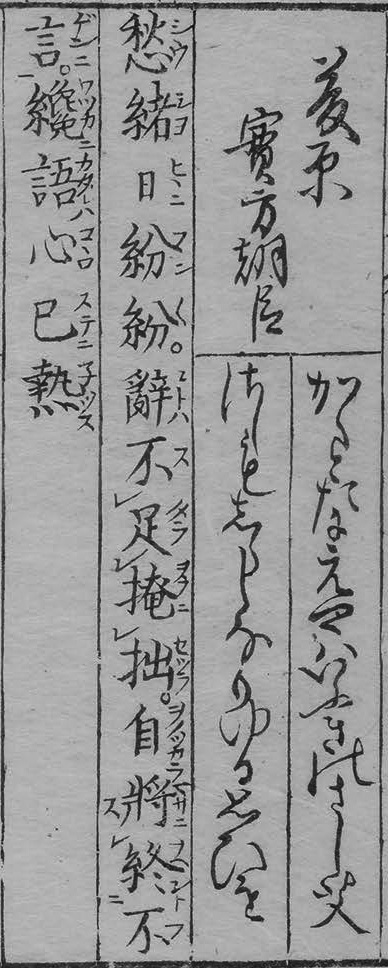 藤原
實方朝臣
かくとだにえやはいふきのさし艾
さしもしらしなもゆる思ひを
愁緒日紛紛。辭不足掩拙。自將終不
言。纔語心已熱